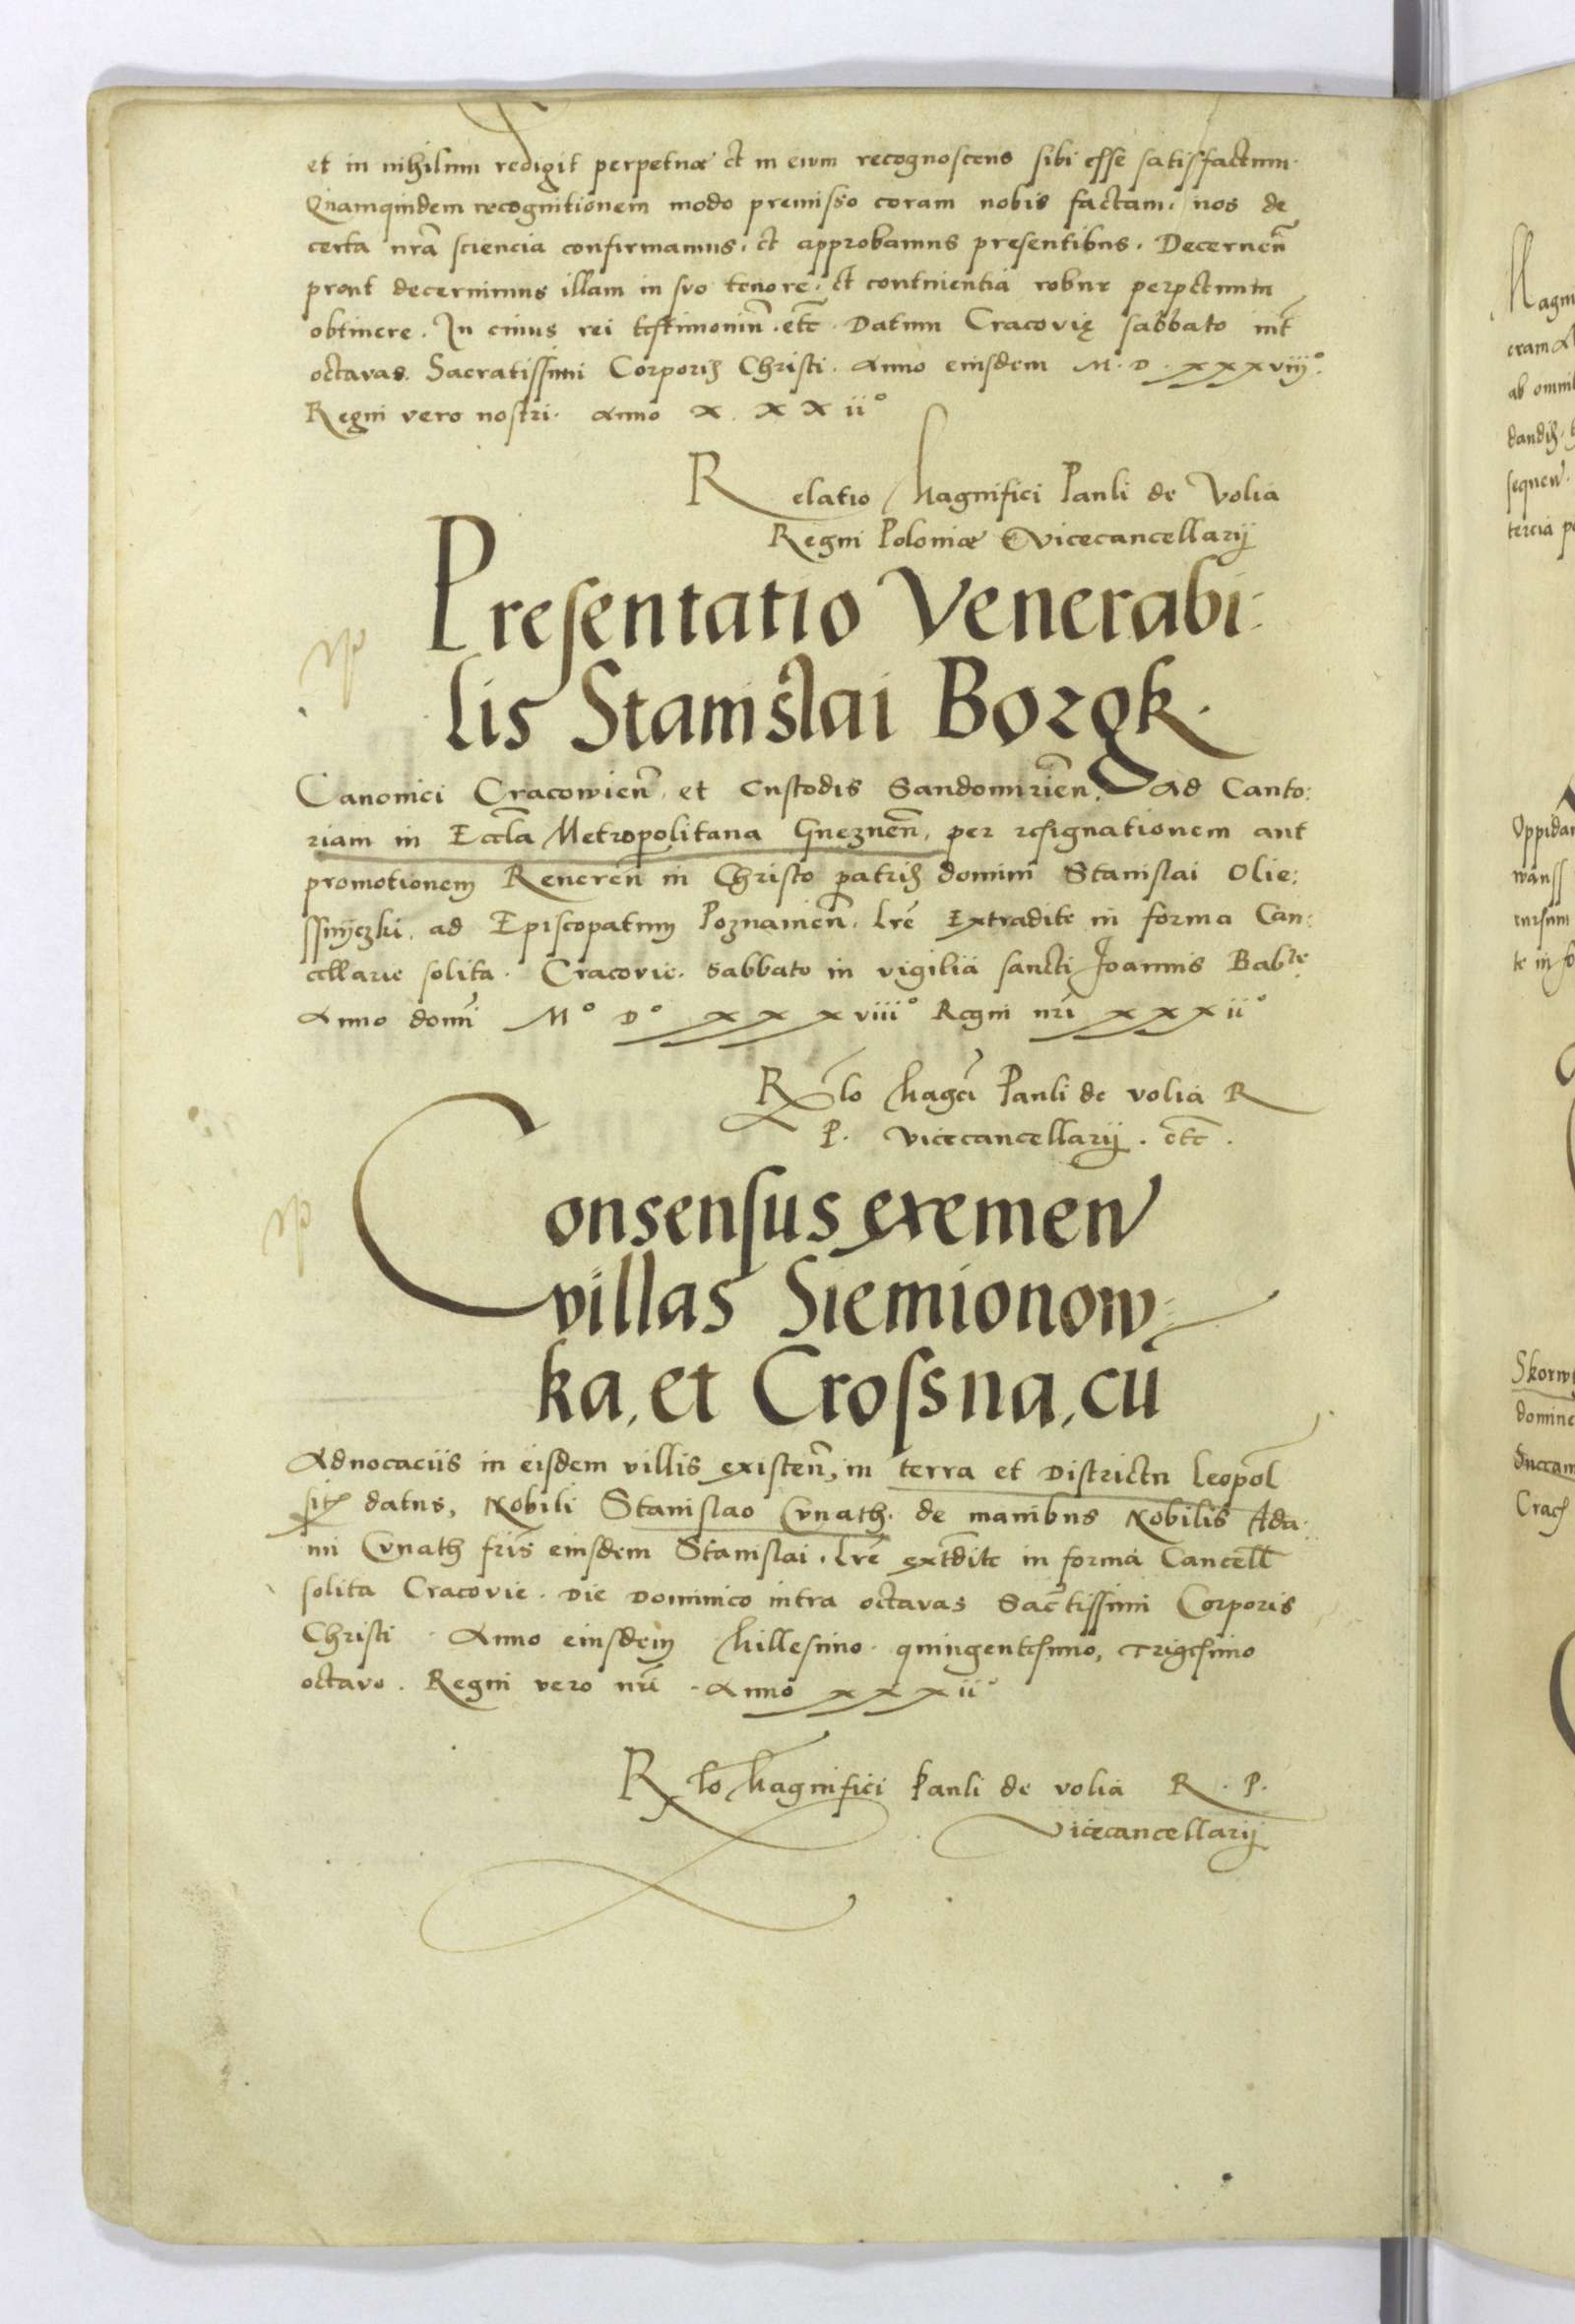 et in nihilum redigit perpetuæ et in eum recognoscens sibi esse satisfactum.
Quamquidem recognitionem modo premisso coram nobis factam, nos de
certa nrã sciencia confirmamus, et approbamus presentibus. Decernen̄
prout decernimus illam in suo tenore, et continentia robur perpetuum
obtinere. In cuius rei testimoniũ. etc̄. Datum Cracovię sabbato
octavas Sacratissimi Corporis Christi. Anno eiusdem M. D. xxxviij°.
Regni vero nostri. Anno x x x ii°
Relatio Magnifici Pauli de Volia
Regni Poloniæ Vicecancellarij
Presentatio Venerabi:
lis Stanislai Borgk.
Canonici Cracowien̄. et Custodis Sandomirien̄. ad Canto:
riam in Eccl̄a Metropolitana Gneznen̄, per resignationem aut
promotionem Reveren̄ in Christo patris domini Stanislai Olie:
ssnyczki, ad Episcopatum Poznanien̄. Lrē Extradite in forma Can:
cellarie solita. Cracovie. Sabbato in vigilia sancti Joannis Babte
Anno domī M° D° x x x viii° Regni nrī x x x ii°
Rlo Magci Pauli de volia R
P. vicecancellarij. etc̄.
Consensus exemen
villas Siemionow:
ka, et Crossna, cū
Advocaciis in eisdem villis existen̄, in terra et Districtu Leopol̄
datus, Nobili Stanislao Cvnath. de manibus Nobilis Ada
mi Cvnath fris̄ eiusdem Stanislai. Lrē extd̄ite in forma Cancell̄
solita Cracovie. Die Dominico intra octavas Sac̄tissimi Corporis
Christi. Anno eiusdem Millesimo quingentesimo, Trigesimo
octavo. Regni vero nrī. Anno x x x ii°
Rlo Magnifici Pauli de volia R. P.
Vicecancellarij